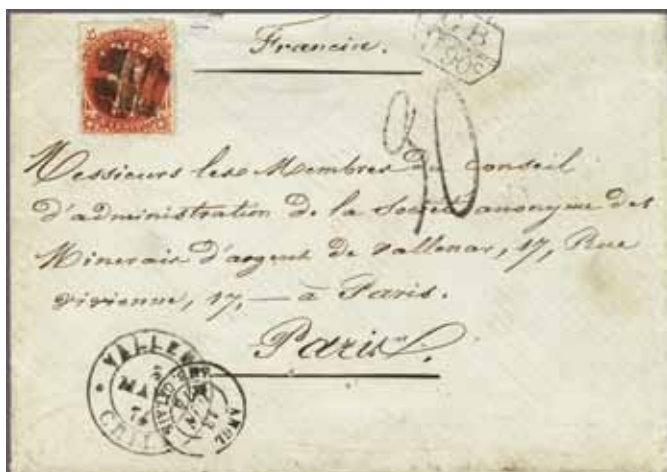 Francia.
GB
90
Messieurs les Membres du Conseil
d'administration de la Société anonyme des
Minerais d'argent de Vallenar, 17, Rue
Vivienne, 17, — à Paris.
Paris.
VALLEN
MA
CHILE
ANGL
CALAIS